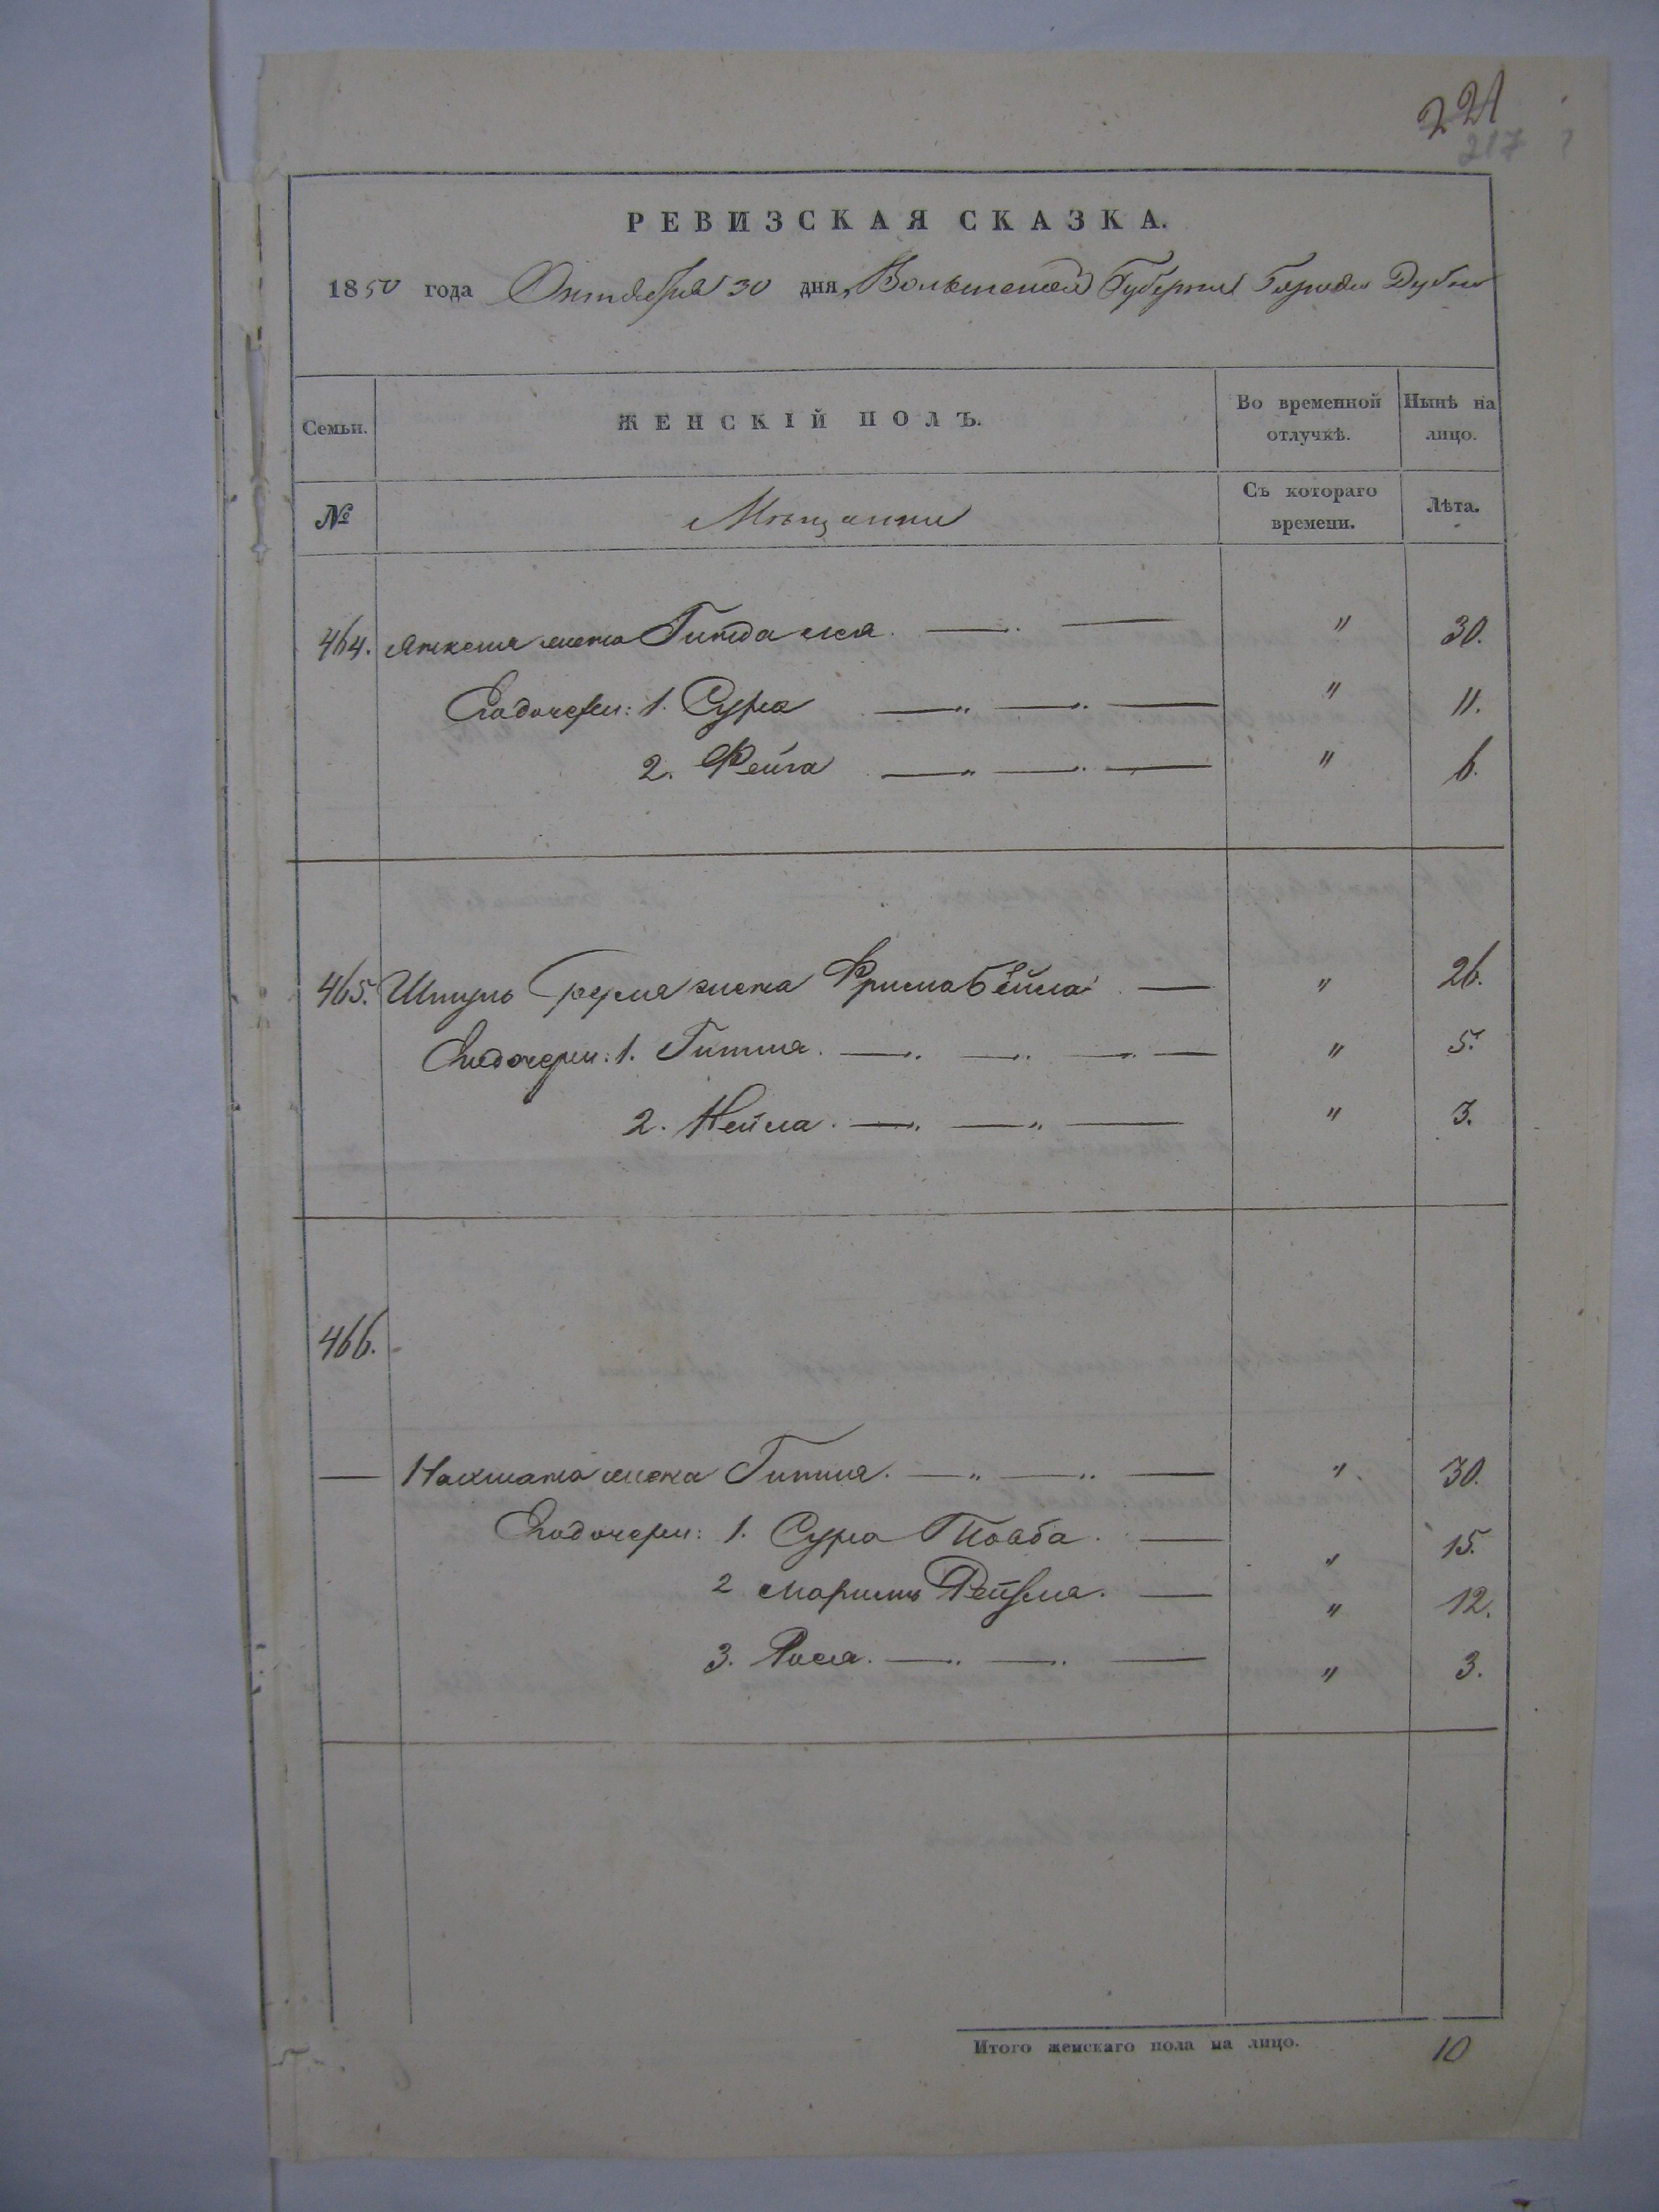 221
217
РЕВИЗСКАЯ СКАЗКА.
1850 года Октября 30 дня, Волынской Губернии Города Дубно
Семьи.
ЖЕНСКІЙ ПОЛЪ.
Во временной отлучкѣ.
Нынѣ на лицо.
№
Мѣщанки
Съ котораго времени.
Лѣта.
464. жена Гитда " 30.
Его дочери: 1. Сура " 11.
2. Фейга " 6.
465. жена Фрима Бейла " 26.
Его дочери: 1. Гитля " 5.
2. Нейла " 3.
466.
жена Гитля " 30.
Его дочери: 1. Сура Товба " 15.
2 Маримъ Рейзля " 12.
3. Рося " 3.
Итого женскаго пола на лицо. 10